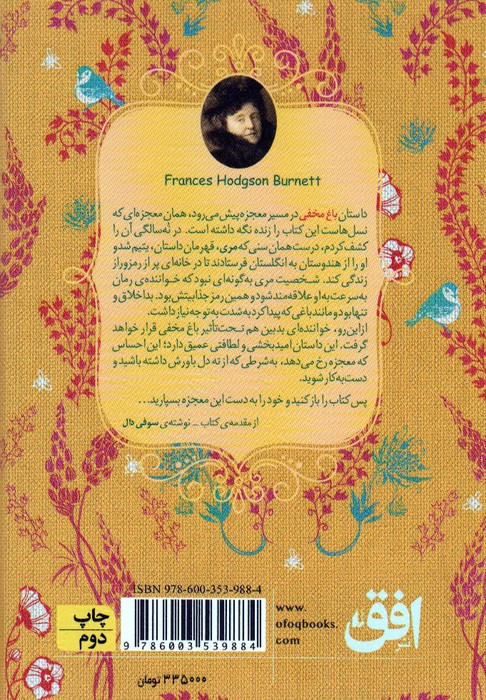 Frances Hodgson Burnett
داستان باغ مخفی در مسیر معجزه پیش می‌رود، همان معجزه‌ای که
نسل‌هاست این کتاب را زنده نگه داشته است. در نُه‌سالگی آن را
کشف کردم، درست همان سنی که مری، قهرمان داستان، یتیم شد و
او را از هندوستان به انگلستان فرستادند تا در خانه‌ای پر از رمزوراز
زندگی کند. شخصیت مری به‌گونه‌ای نبود که خواننده‌ی رمان
به‌سرعت به او علاقه‌مند شود و همین رمز جذابیتش بود. بداخلاق و
تنها بود و مانند باغی که پیدا کرد به‌شدت به توجه نیاز داشت.
از این‌رو، خواننده‌ای بدبین هم تحت‌تأثیر باغ مخفی قرار خواهد
گرفت. این داستان امیدبخشی و لطافتی عمیق دارد؛ این احساس
که معجزه رخ می‌دهد، به‌شرطی که از ته دل باورش داشته باشید و
دست‌به‌کار شوید.
پس کتاب را باز کنید و خود را به دست این معجزه بسپارید...
از مقدمه‌ی کتاب ــ نوشته‌ی سوفی دال
ISBN 978-600-353-988-4
9 786003 539884
۳۳۵۰۰۰ تومان
چاپ
دوم
www.
ofoqbooks.
com
افق